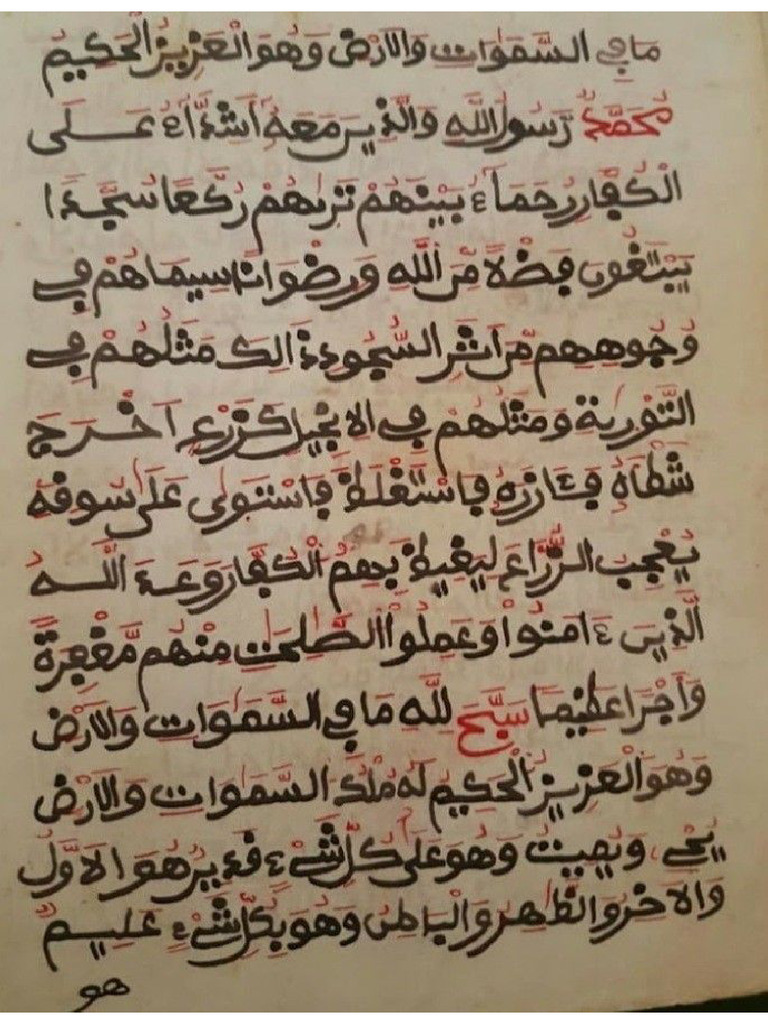 مَا فِي السَّمَٰوَاتِ وَالَارْضِ وَهُوَ الْعَزِيزُ الْحَكِيمُ
مُحَمَّدٌ رَّسُولُ اللَّهِ وَالَّذِينَ مَعَهُ أَشِدَّاءُ عَلَى
الْكُفَّارِ رُحَمَاءُ بَيْنَهُمْ تَرَىٰهُمْ رُكَّعًا سُجَّدًا
يَبْتَغُونَ فَضْلًا مِّنَ اللَّهِ وَرِضْوَانًا سِيمَاهُمْ فِي
وُجُوهِهِم مِّنَ اَثَرِ السُّجُودِ ذَالِكَ مَثَلُهُمْ فِي
التَّوْرَىٰةِ وَمَثَلُهُمْ فِي الِانجِيلِ كَزَرْعٍ اَخْرَجَ
شَطْأَهُ فَـَٔازَرَهُ فَاسْتَغْلَظَ فَاسْتَوَىٰ عَلَىٰ سُوقِهِ
يُعْجِبُ الزُّرَّاعَ لِيَغِيظَ بِهِمُ الْكُفَّارَ وَعَدَ اللَّهُ
الَّذِينَ ءَامَنُوا وَعَمِلُوا الصَّٰلِحَٰتِ مِنْهُم مَّغْفِرَةً
وَأَجْرًا عَظِيمًا سَبَّحَ لِلَّهِ مَا فِي السَّمَٰوَاتِ وَالَارْضِ
وَهُوَ الْعَزِيزُ الْحَكِيمُ لَهُ مُلْكُ السَّمَٰوَاتِ وَالَارْضِ
يُحْيِي وَيُمِيتُ وَهُوَ عَلَىٰ كُلِّ شَيْءٍ قَدِيرٌ هُوَ الَاوَّلُ
وَالَاخِرُ وَالظَّٰهِرُ وَالْبَاطِنُ وَهُوَ بِكُلِّ شَيْءٍ عَلِيمٌ
هو